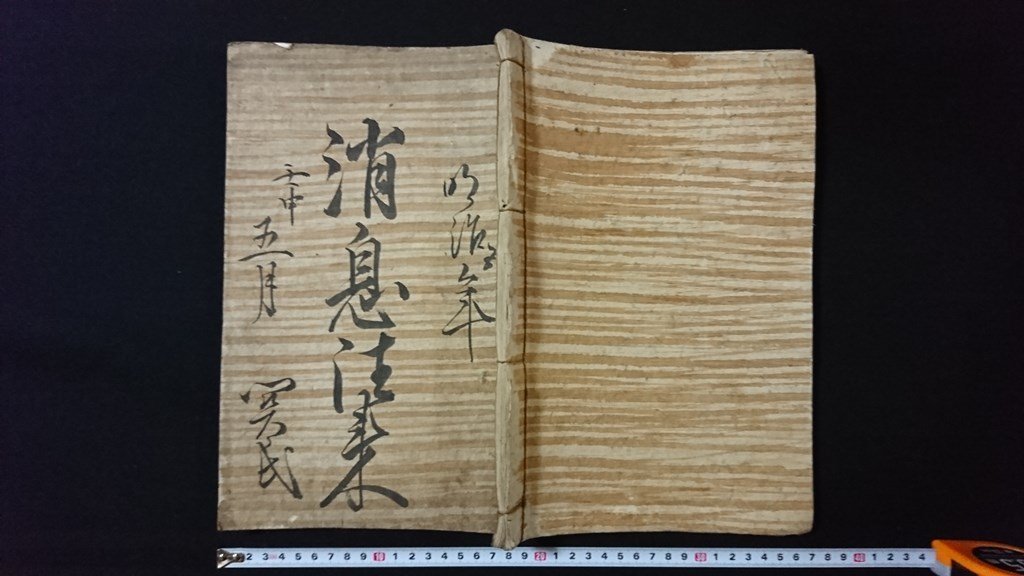 明治五年
消息往来
壬申
五月
2 3 4 5 6 7 8 9 10 1 2 3 4 5 6 7 8 9 20 1 2 3 4 5 6 7 8 9 30 1 2 3 4 5 6 7 8 9 40 1 2 3 4